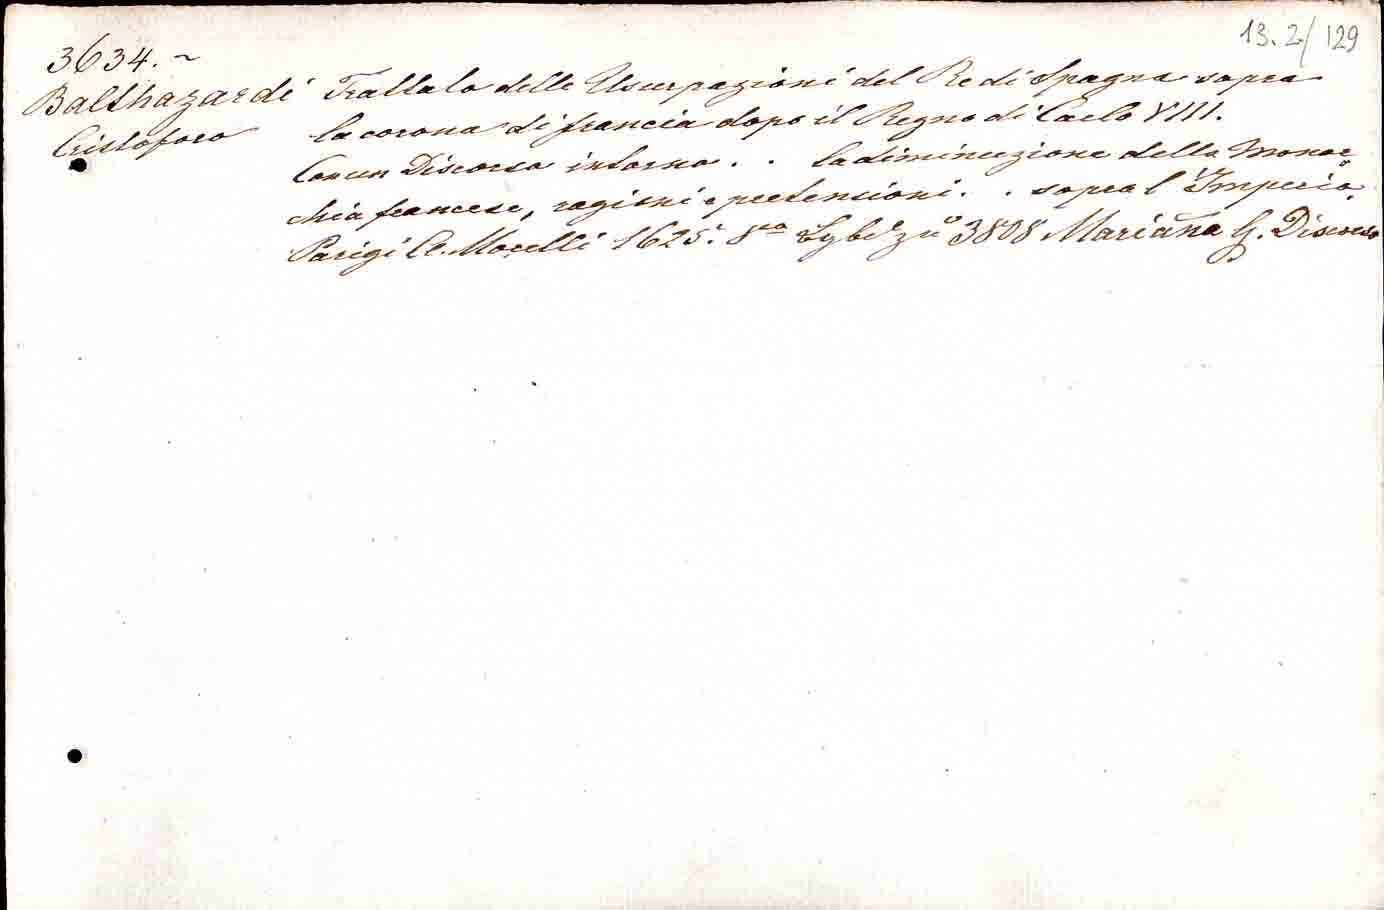 13.2/129
3634. ~
Balthazardi Trattato delle Usurpazioni del Re di Spagna sopra
Cristoforo la corona di francia dopo il Regno di Carlo VIII.
Con un Discorso intorno . . la diminuzione della Monar=
chia francese, ragioni e pretensioni . . sopra l'Imperio.
Parigi Cl. Morelli 1625. 8vo zu 3808 Mariana G. Discorso